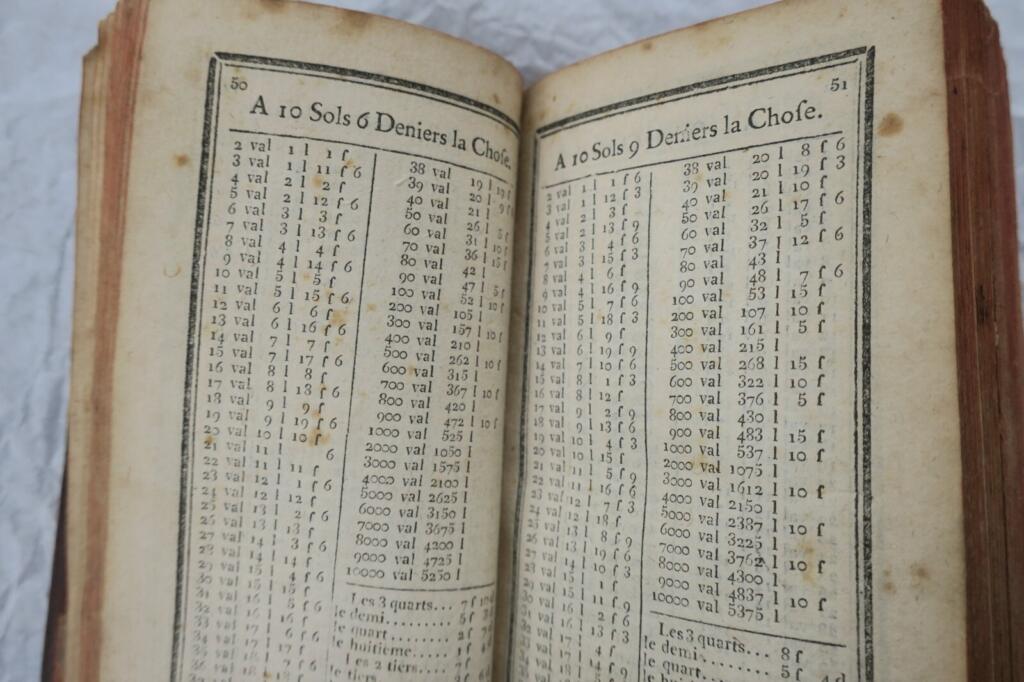 50
A 10 Sols 6 Deniers la Choſe.
2 val 1 l 1 ſ
3 val 1 l 11 ſ 6
4 val 2 l 2 ſ
5 val 2 l 12 ſ 6
6 val 3 l 3 ſ
7 val 3 l 13 ſ 6
8 val 4 l 4 ſ
9 val 4 l 14 ſ 6
10 val 5 l 5 ſ
11 val 5 l 15 ſ 6
12 val 6 l 6 ſ
13 val 6 l 16 ſ 6
14 val 7 l 7 ſ
15 val 7 l 17 ſ 6
16 val 8 l 8 ſ
17 val 8 l 18 ſ 6
18 val 9 l 9 ſ
19 val 9 l 19 ſ 6
20 val 10 l 10 ſ
21 val 11 l 6
22 val 11 l 11 ſ
23 val 12 l 1 ſ 6
24 val 12 l 12 ſ
25 val 13 l 2 ſ 6
26 val 13 l 13 ſ
27 val 14 l 3 ſ 6
28 val 14 l 14 ſ
29 val 15 l 4 ſ 6
30 val 15 l 15 ſ
31 val 16 l 5 ſ 6
32 val 16 l 16 ſ
33 val 17 l 6 ſ 6
34 val 17 l 17 ſ
38 val 19 l 19 ſ
39 val 20 l 9 ſ
40 val 21 l
50 val 26 l 5 ſ
60 val 31 l 10 ſ
70 val 36 l 15 ſ
80 val 42 l
90 val 47 l 5 ſ
100 val 52 l 10 ſ
200 val 105 l
300 val 157 l 10 ſ
400 val 210 l
500 val 262 l 10 ſ
600 val 315 l
700 val 367 l 10 ſ
800 val 420 l
900 val 472 l 10 ſ
1000 val 525 l
2000 val 1050 l
3000 val 1575 l
4000 val 2100 l
5000 val 2625 l
6000 val 3150 l
7000 val 3675 l
8000 val 4200 l
9000 val 4725 l
10000 val 5250 l
Les 3 quarts... 7 ſ
le demi........ 5 ſ
le quart........ 2 ſ
le huitieme.... 1 ſ
Les 2 tiers.... 7 ſ
51
A 10 Sols 9 Deniers la Choſe.
2 val 1 l 1 ſ 6
3 val 1 l 12 ſ 3
4 val 2 l 3 ſ
5 val 2 l 13 ſ 9
6 val 3 l 4 ſ 6
7 val 3 l 15 ſ 3
8 val 4 l 6 ſ
9 val 4 l 16 ſ 9
10 val 5 l 7 ſ 6
11 val 5 l 18 ſ 3
12 val 6 l 9 ſ
13 val 6 l 19 ſ 9
14 val 7 l 10 ſ 6
15 val 8 l 1 ſ 3
16 val 8 l 12 ſ
17 val 9 l 2 ſ 9
18 val 9 l 13 ſ 6
19 val 10 l 4 ſ 3
20 val 10 l 15 ſ
21 val 11 l 5 ſ 9
22 val 11 l 16 ſ 6
23 val 12 l 7 ſ 3
24 val 12 l 18 ſ
25 val 13 l 8 ſ 9
26 val 13 l 19 ſ 6
27 val 14 l 10 ſ 3
28 val 15 l 1 ſ
29 val 15 l 11 ſ 9
30 val 16 l 2 ſ 6
31 val 16 l 13 ſ 3
32 val 17 l 4 ſ
38 val 20 l 8 ſ 6
39 val 20 l 19 ſ 3
40 val 21 l 10 ſ
50 val 26 l 17 ſ 6
60 val 32 l 5 ſ
70 val 37 l 12 ſ 6
80 val 43 l
90 val 48 l 7 ſ 6
100 val 53 l 15 ſ
200 val 107 l 10 ſ
300 val 161 l 5 ſ
400 val 215 l
500 val 268 l 15 ſ
600 val 322 l 10 ſ
700 val 376 l 5 ſ
800 val 430 l
900 val 483 l 15 ſ
1000 val 537 l 10 ſ
2000 val 1075 l
3000 val 1612 l 10 ſ
4000 val 2150 l
5000 val 2387 l 10 ſ
6000 val 3225 l
7000 val 3762 l 10 ſ
8000 val 4300 l
9000 val 4837 l 10 ſ
10000 val 5375 l
Les 3 quarts... 8 ſ
le demi....... 5 ſ 4 d
le quart.